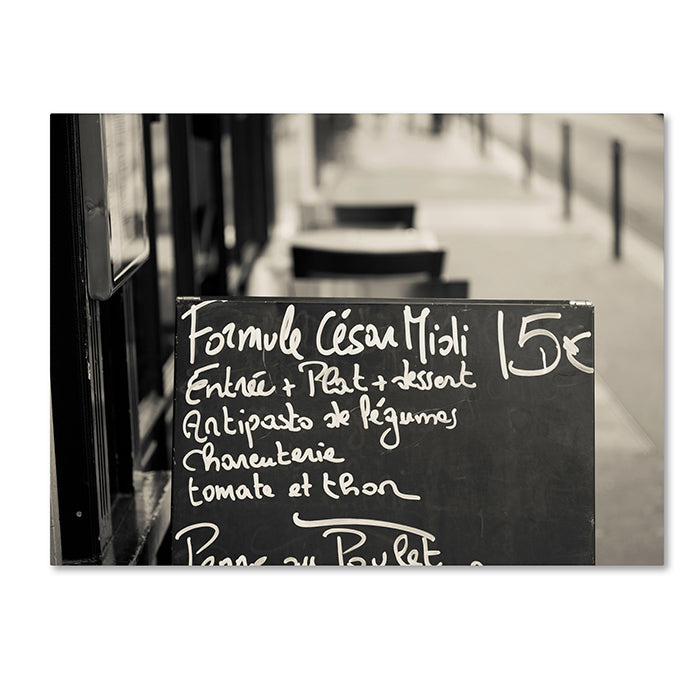 Formule César Midi 15€
Entrée + Plat + dessert
Antipasto de légumes
Charcuterie
tomate et thon
Penne au Poulet